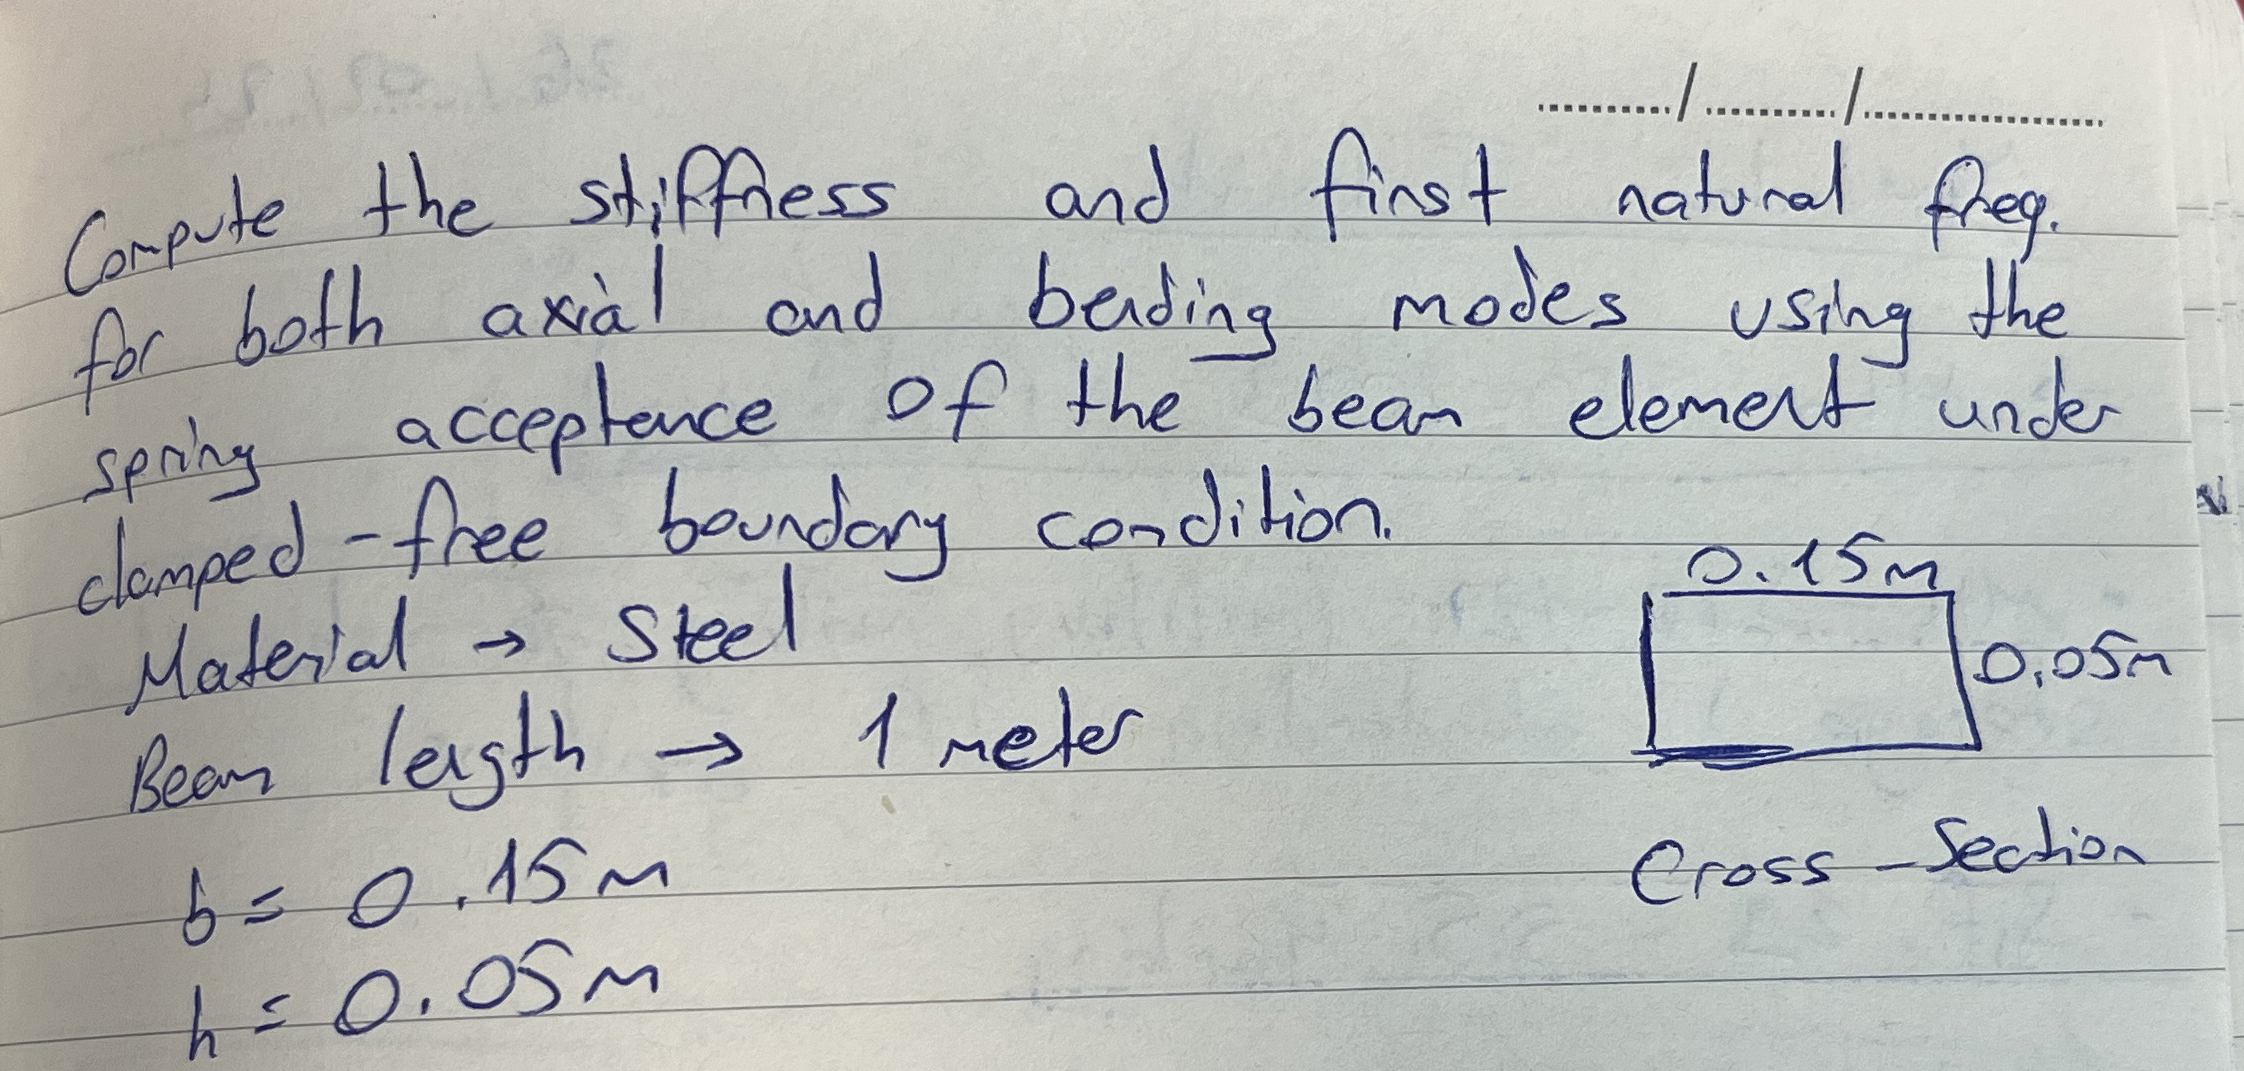 Compute the stiffness and first natural freq.
for both axial and bending modes using the
spring acceptence of the beam element under
clamped-free boundary condition.
Material → Steel
Beam length → 1 meter
b = 0.15m
h = 0.05m
0.15m
0.05m
Cross-Section